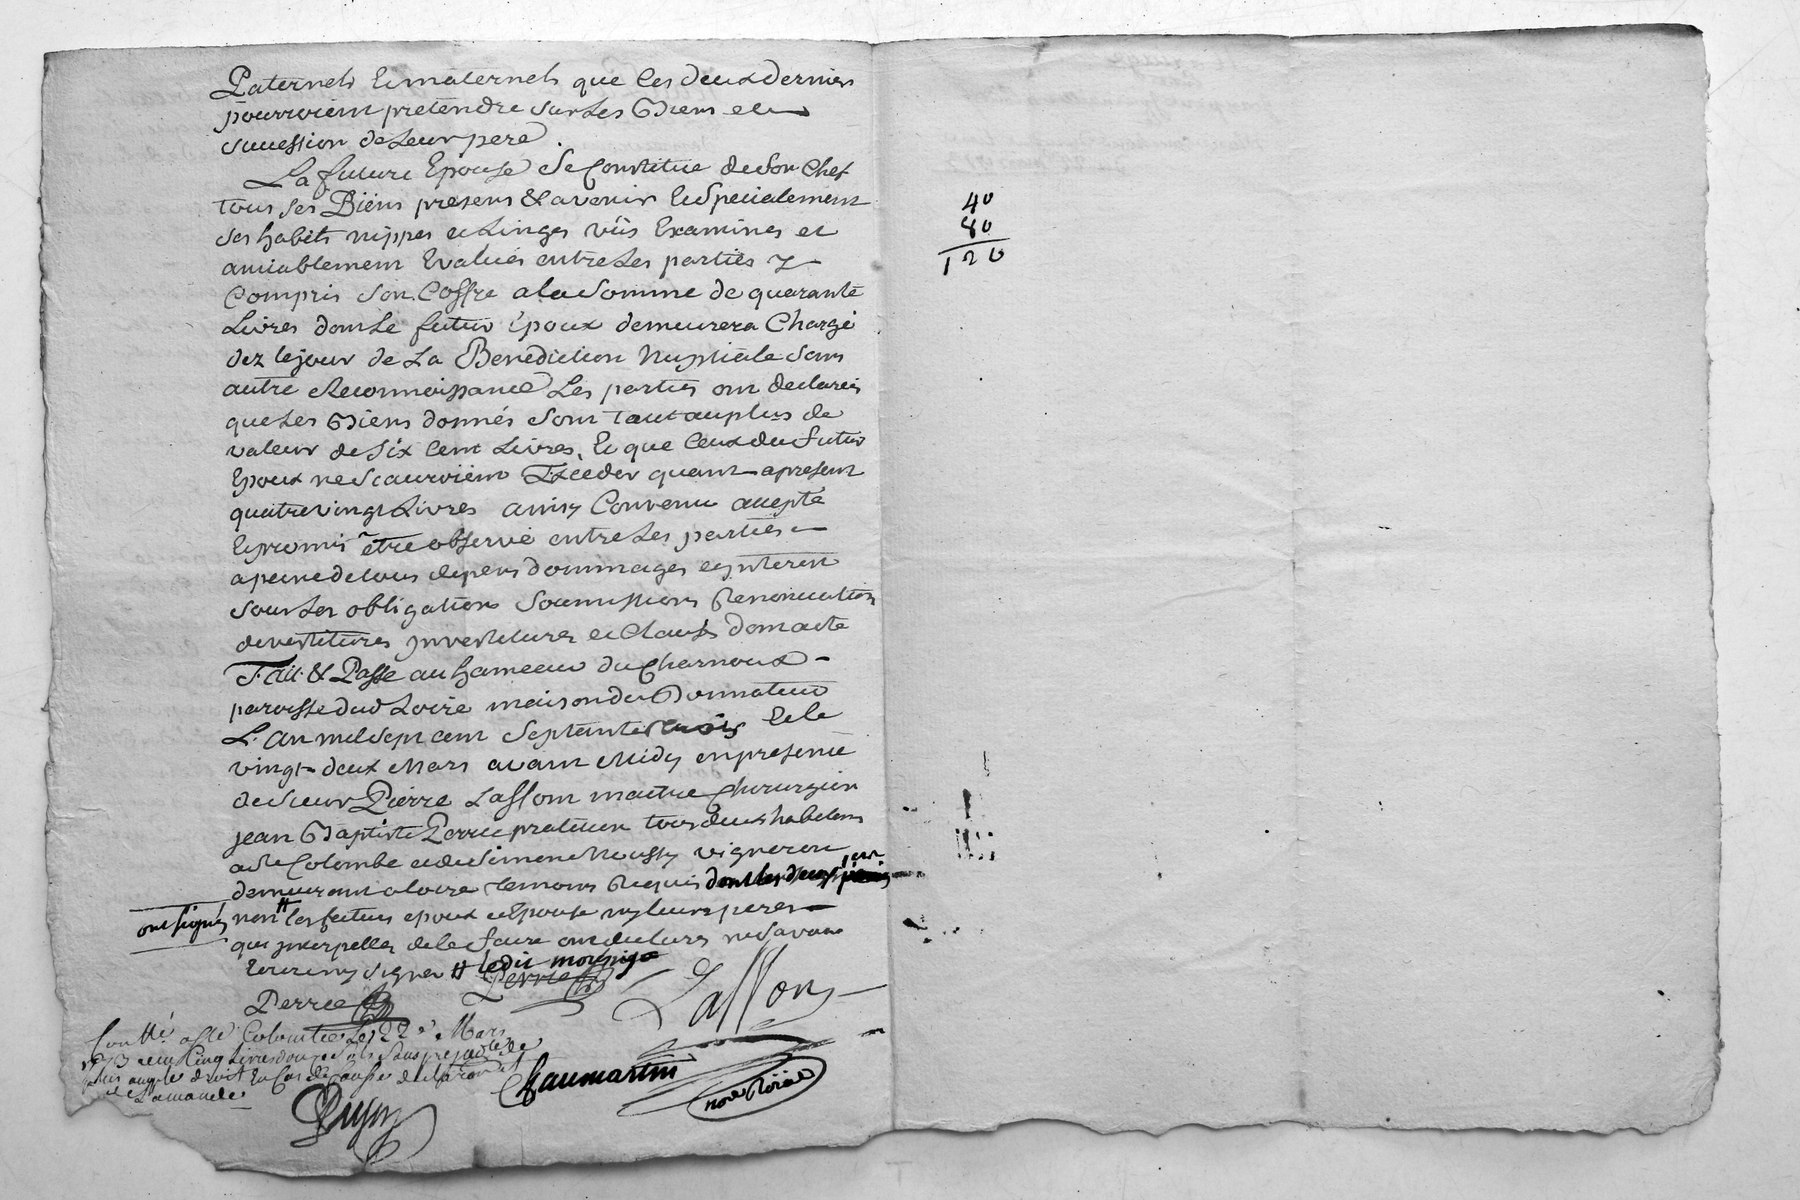 Paternels Et maternels que les deux derniers
pourroient pretendre sur les Biens et
succession de Leur pere.
La future Epouse Se Constitue de Son Chef
tous ses Biens presens & avenir Et Specialement
ses habits nippes et Linges vûs Examinés et
amiablement Evalués entre Les parties y
Compris Son Coffre a la Somme de quarante
Livres dont Le futur Epoux demeurera Chargé
dez le jour de La Benediction Nuptiale Sans
autre Reconnoissance Les parties ont declarés
que Les Biens donnés Sont tout au plus de
valeur de Six Cent Livres, Et que Ceux du futur
Epoux ne Scauroient Exceder quant apresent
quatre vingt Livres ainsy Convenu accepté
Et promis être observé entre Les parties
a peine de tous depens dommages et interest
Sous Les obligations Soumissions Renonciations
devestitures investitures et Clauses dont acte
Fait & Passé au hameau du Charnoux
paroisse dud Loire maison du Donnateur
L'an mil Sept cent Septante trois Et le
vingt deux Mars avant Midy en presence
de Sieur Pierre Lassont maitre Chirurgien
jean Baptiste Perrie praticien tous deux habitans
a Ste Colombe et de Simon Moussy vigneron
demeurant a loire temoins Requis dont les deux 1ers
ont signés
non # les futurs epoux et Epouse ny leurs peres
qui interpellés de le faire ont declarés ne Savoir
Ecrire ny signer # ledit moussy
Perrie
Perrie Lassont
Conllé a Ste Colombe Le 22e Mars
1773 Reçu Cinq Livres douze Sols Sans prejudice de
plus ample droit En Cas de
de Lamande
Chaumartin
not Roïal
Guyon
40
80
120